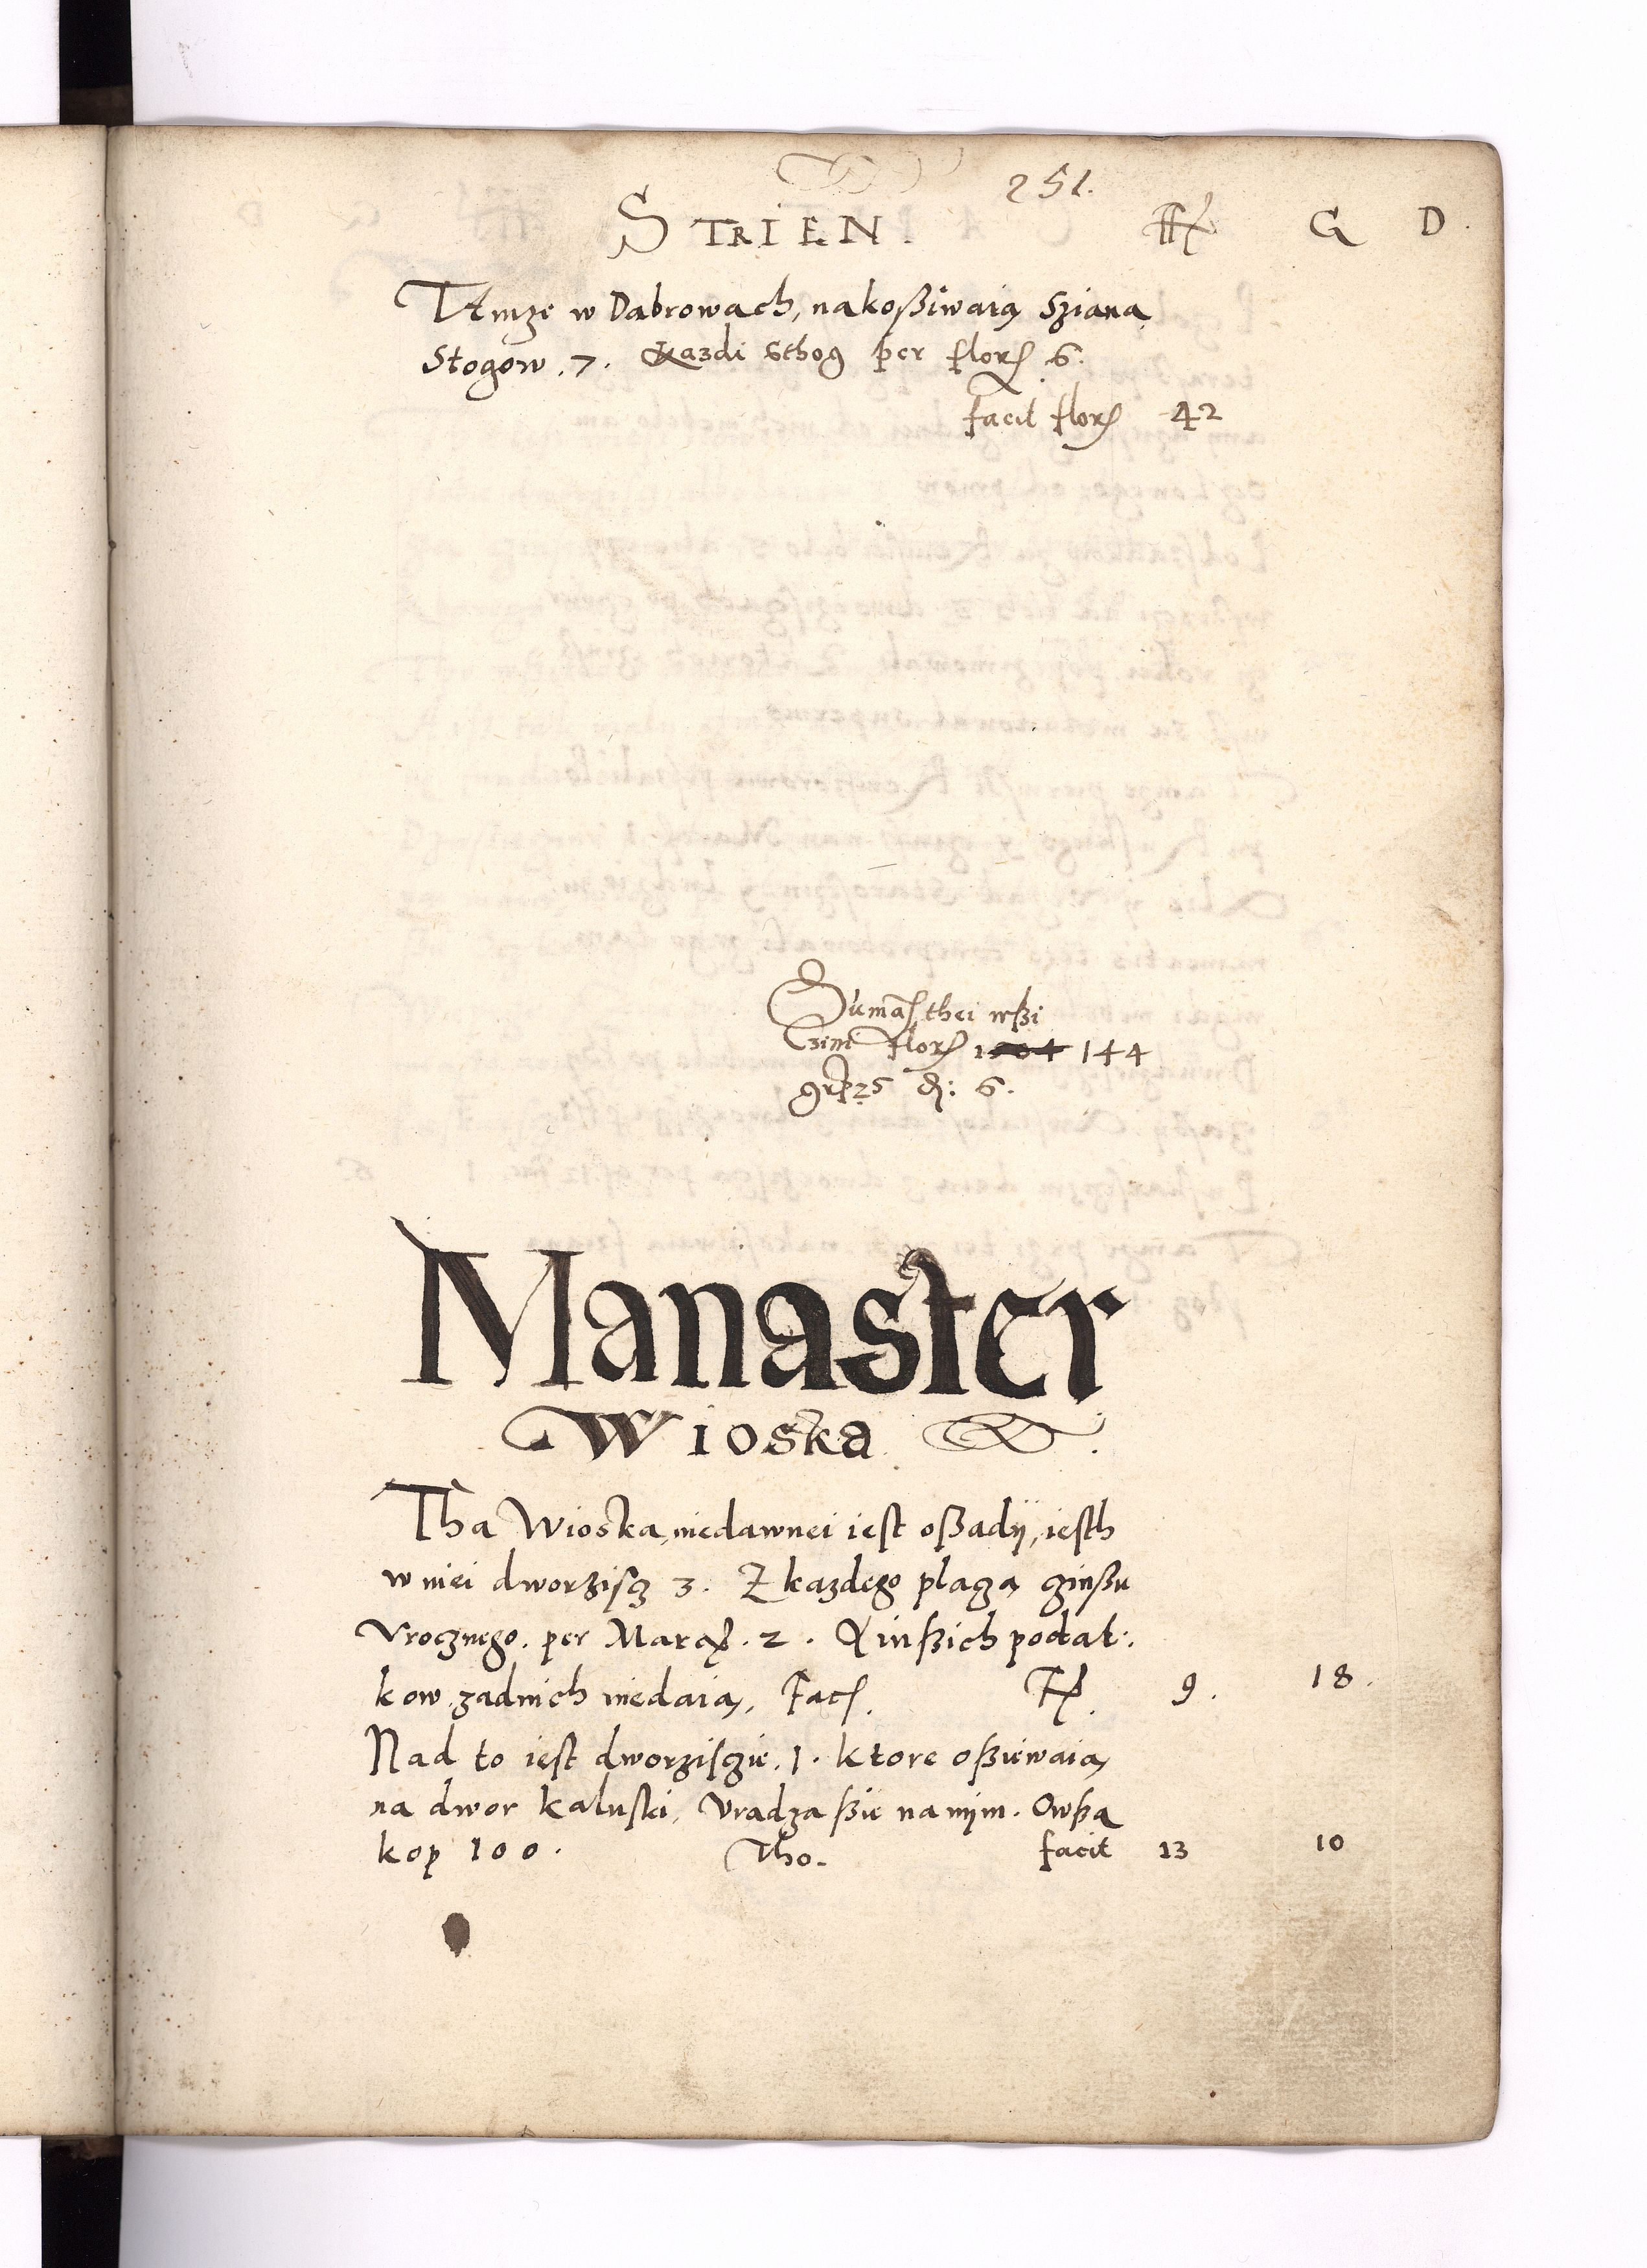 251.
STRIEN. Fl G D.
Tamze w Dabrowach, nakoßiwaią Sziana
Stogow .7. Kazdi Sthog per flor 6.
facit flor 42
Suma thei wßi
Czini flor 144
gr 25 d: 6.
Manaster
Wioska
Tha Wioska, niedawnei iest oßadÿ, iesth
w niei dworzisz 3. Z kazdego placzą czinßu
Vrocznego. per Marcas. 2. A inßich podat:
kow zadnich niedaią, Fac. Fl. 9. 18.
Nad to iest dworziszie .1. ktore oßiewaią
na dwor kaluski, Vradza ßie na nijm. Owßa
kop 100. Tho. facit 13 10